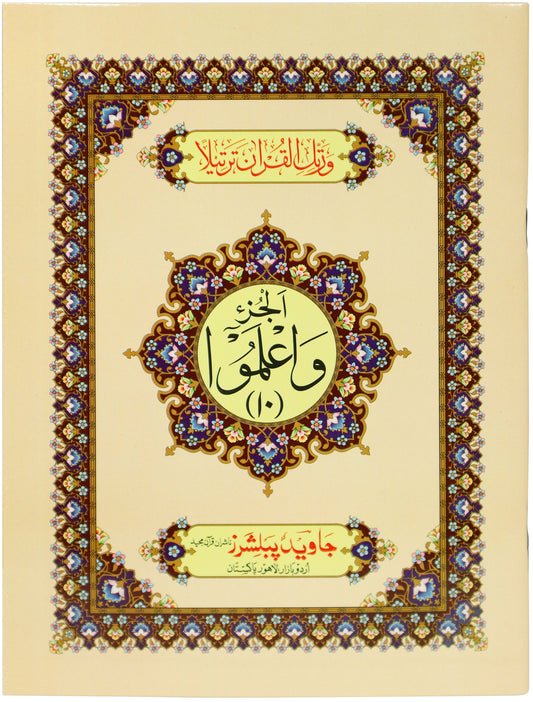 ورتل القرآن ترتیلا
الجزء
واعلموا
(۱۰)
جاوید پبلشرز ناشران قرآن مجید
اردو بازار لاہور پاکستان